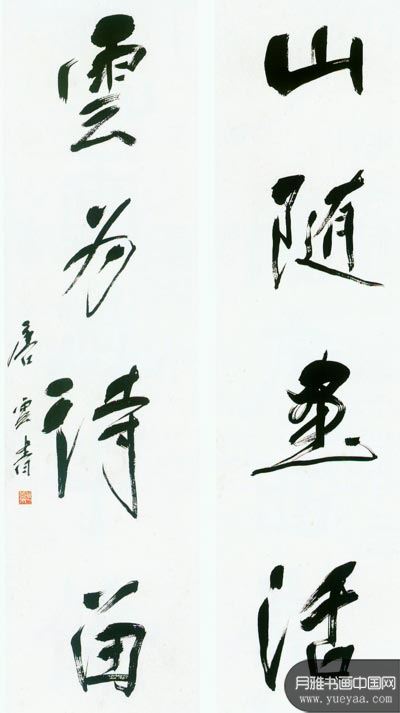 山随画活
雲为詩留
唐雲書
月雅书画中国网
www.yueyaa.com